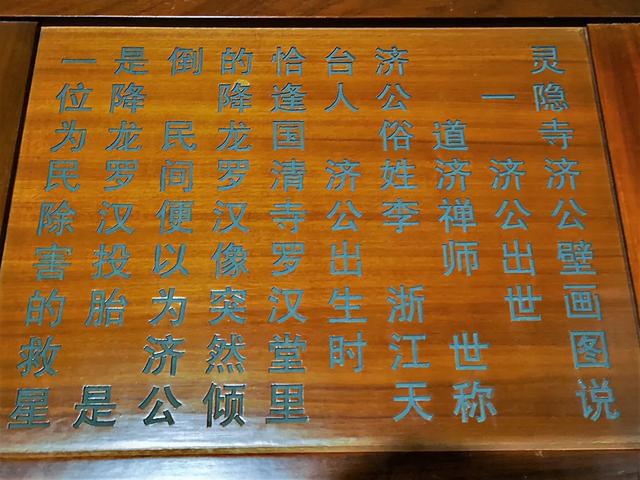 灵隐寺济公壁画图说
一 济公出世
道济禅师 世称
济公俗姓李 浙江天
台人 济公出生时
恰逢国清寺罗汉堂里
的降龙罗汉像突然倾
倒 民间便以为济公
是降龙罗汉投胎 是
一位为民除害的救星